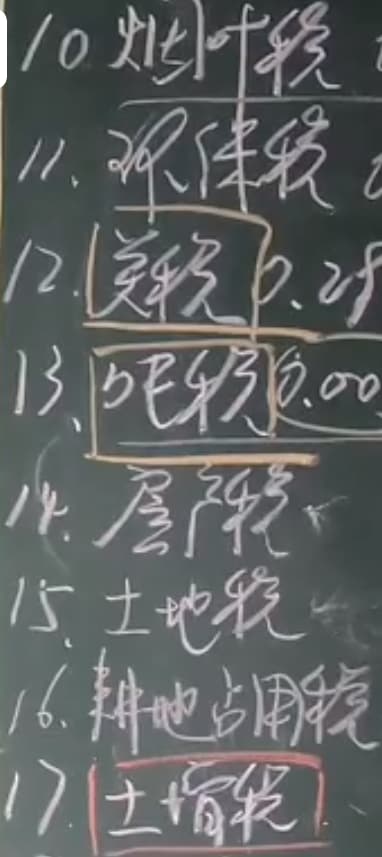 10 烟叶税
11. 环保税
12. 关税 0.28
13. 吨税 0.00
14. 房产税
15. 土地税
16. 耕地占用税
17. 土增税